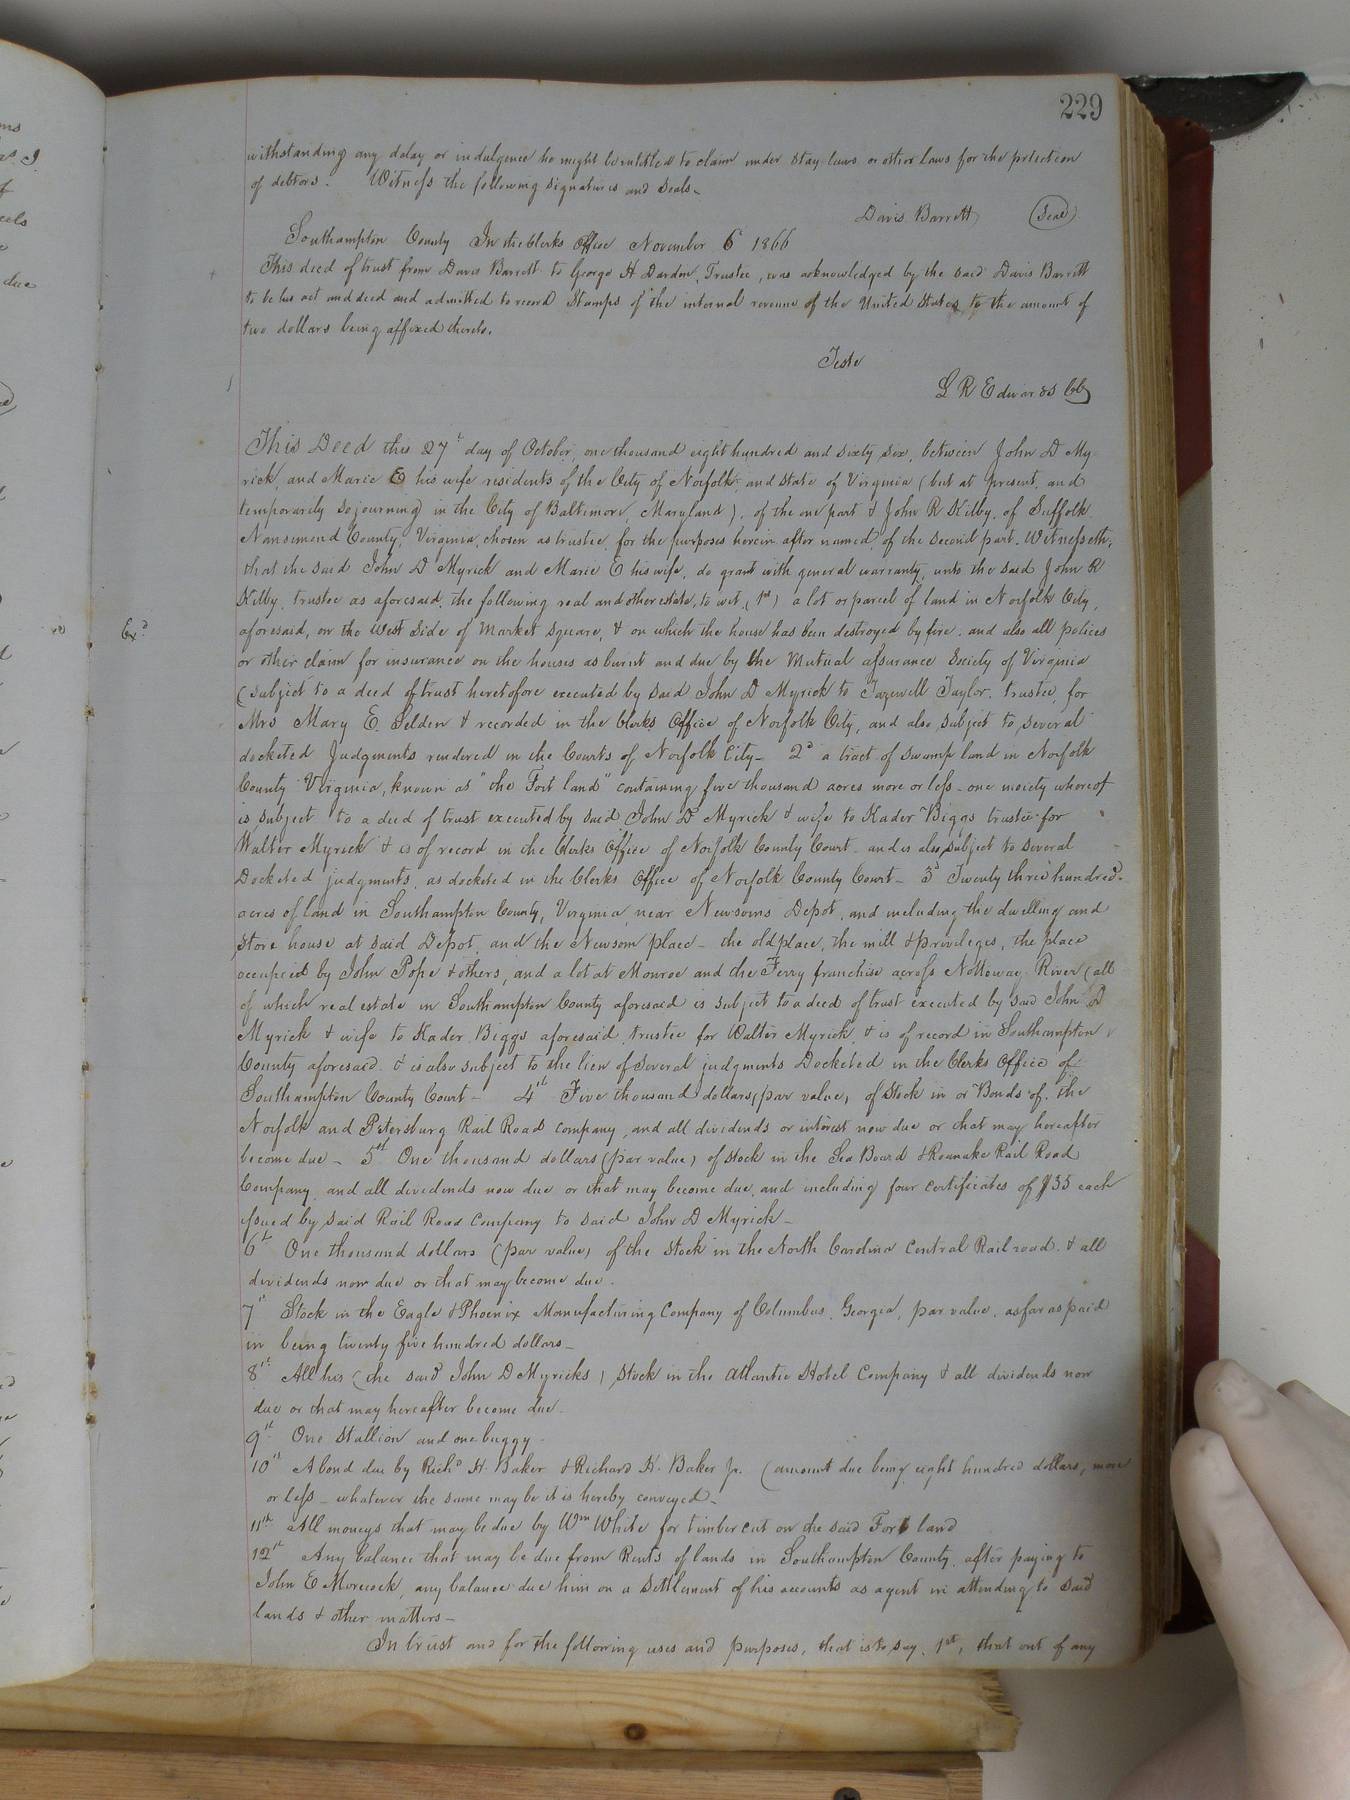 229
withstanding any delay or indulgence he might be entitled to claim under stay laws or other laws for the protection
of debtors. Witness the following signatures and seals_
Davis Barrett (Seal)
Southampton County In the Clerks Office November 6 1866
This deed of trust from Davis Barrett to George H Darden, Trustee, was acknowledged by the said Davis Barrett
to be his act and deed and admitted to record Stamps of the internal revenue of the United States to the amount of
two dollars being affixed thereto.
Teste
L R Edwards CC
This Deed this 27th day of October, one thousand eight hundred and sixty six, between John D My
rick, and Marie E his wife residents of the City of Norfolk, and State of Virginia (but at present, and
temporarily sojourning in the City of Baltimore, Maryland), of the one part & John R Kilby, of Suffolk
Nansemond County, Virginia, chosen as trustee, for the purposes herein after named, of the second part. Witnesseth,
that the said John D Myrick and Marie E his wife, do grant with general warranty, unto the said John R
Kilby, trustee as aforesaid, the following real and other estate, to wit, (1st) a lot or parcel of land in Norfolk City,
Exd
aforesaid, on the West Side of Market Square, & on which the house has been destroyed by fire. and also all polices
or other claim for insurance on the houses as burnt and due by the Mutual assurance Society of Virginia
(subject to a deed of trust heretofore executed by said John D Myrick to Tazewell Taylor, trustee, for
Mrs Mary E. Selden & recorded in the Clerks Office of Norfolk City, and also subject to several
docketed Judgments rendered in the Courts of Norfolk City_ 2d a tract of swamp land in Norfolk
County Virginia, known as "the Fort land" containing five thousand acres more or less_ one moiety whereof
is subject to a deed of trust executed by said John D Myrick & wife to Kader Biggs trustee for
Walter Myrick & is of record in the Clerks Office of Norfolk County Court. and is also subject to several
Docketed judgments, as docketed in the Clerks Office of Norfolk County Court_ 3d Twenty three hundred
acres of land in Southampton County, Virginia, near Newsoms Depot, and including the dwelling and
store house at said Depot, and the Newsom place_ the old place, the mill & privileges, the place
occupied by John Pope & others, and a lot at Monroe and the Ferry franchise across Nottoway River (all
of which real estate in Southampton County aforesaid is subject to a deed of trust executed by said John D
Myrick & wife to Kader Biggs aforesaid, trustee for Walter Myrick, & is of record in Southampton
County aforesaid. & is also subject to the lien of several judgments Docketed in the Clerks Office of
Southampton County Court_ 4th Five thousand dollars, (par value) of Stock in or Bonds of, the
Norfolk and Petersburg Rail Road company, and all dividends or interest now due or that may hereafter
become due_ 5th One thousand dollars (par value) of stock in the Sea Board & Roanoke Rail Road
Company, and all dividends now due or that may become due, and including four certificates of $35 each
issued by said Rail Road Company to said John D Myrick_
6th One thousand dollars (par value) of the Stock in the North Carolina Central Rail road. & all
dividends now due or that may become due.
7th Stock in the Eagle & Phoenix Manufacturing Company of Columbus, Georgia, par value, as far as paid
in being twenty five hundred dollars_
8th All his (the said John D Myricks) stock in the Atlantic Hotel Company & all dividends now
due or that may hereafter become due.
9th One Stallion and one buggy
10th A bond due by Richd H. Baker & Richard H. Baker Jr. (amount due being eight hundred dollars, more
or less_ whatever the same may be it is hereby conveyed_
11th All moneys that may be due by Wm White for timber cut on the said Fort land
12th Any balance that may be due from Rents of lands in Southampton County, after paying to
John E Morecock, any balance due him on a Settlement of his accounts as agent in attending to said
lands & other matters_
In trust and for the following uses and purposes, that is to say, 1st, that out of any